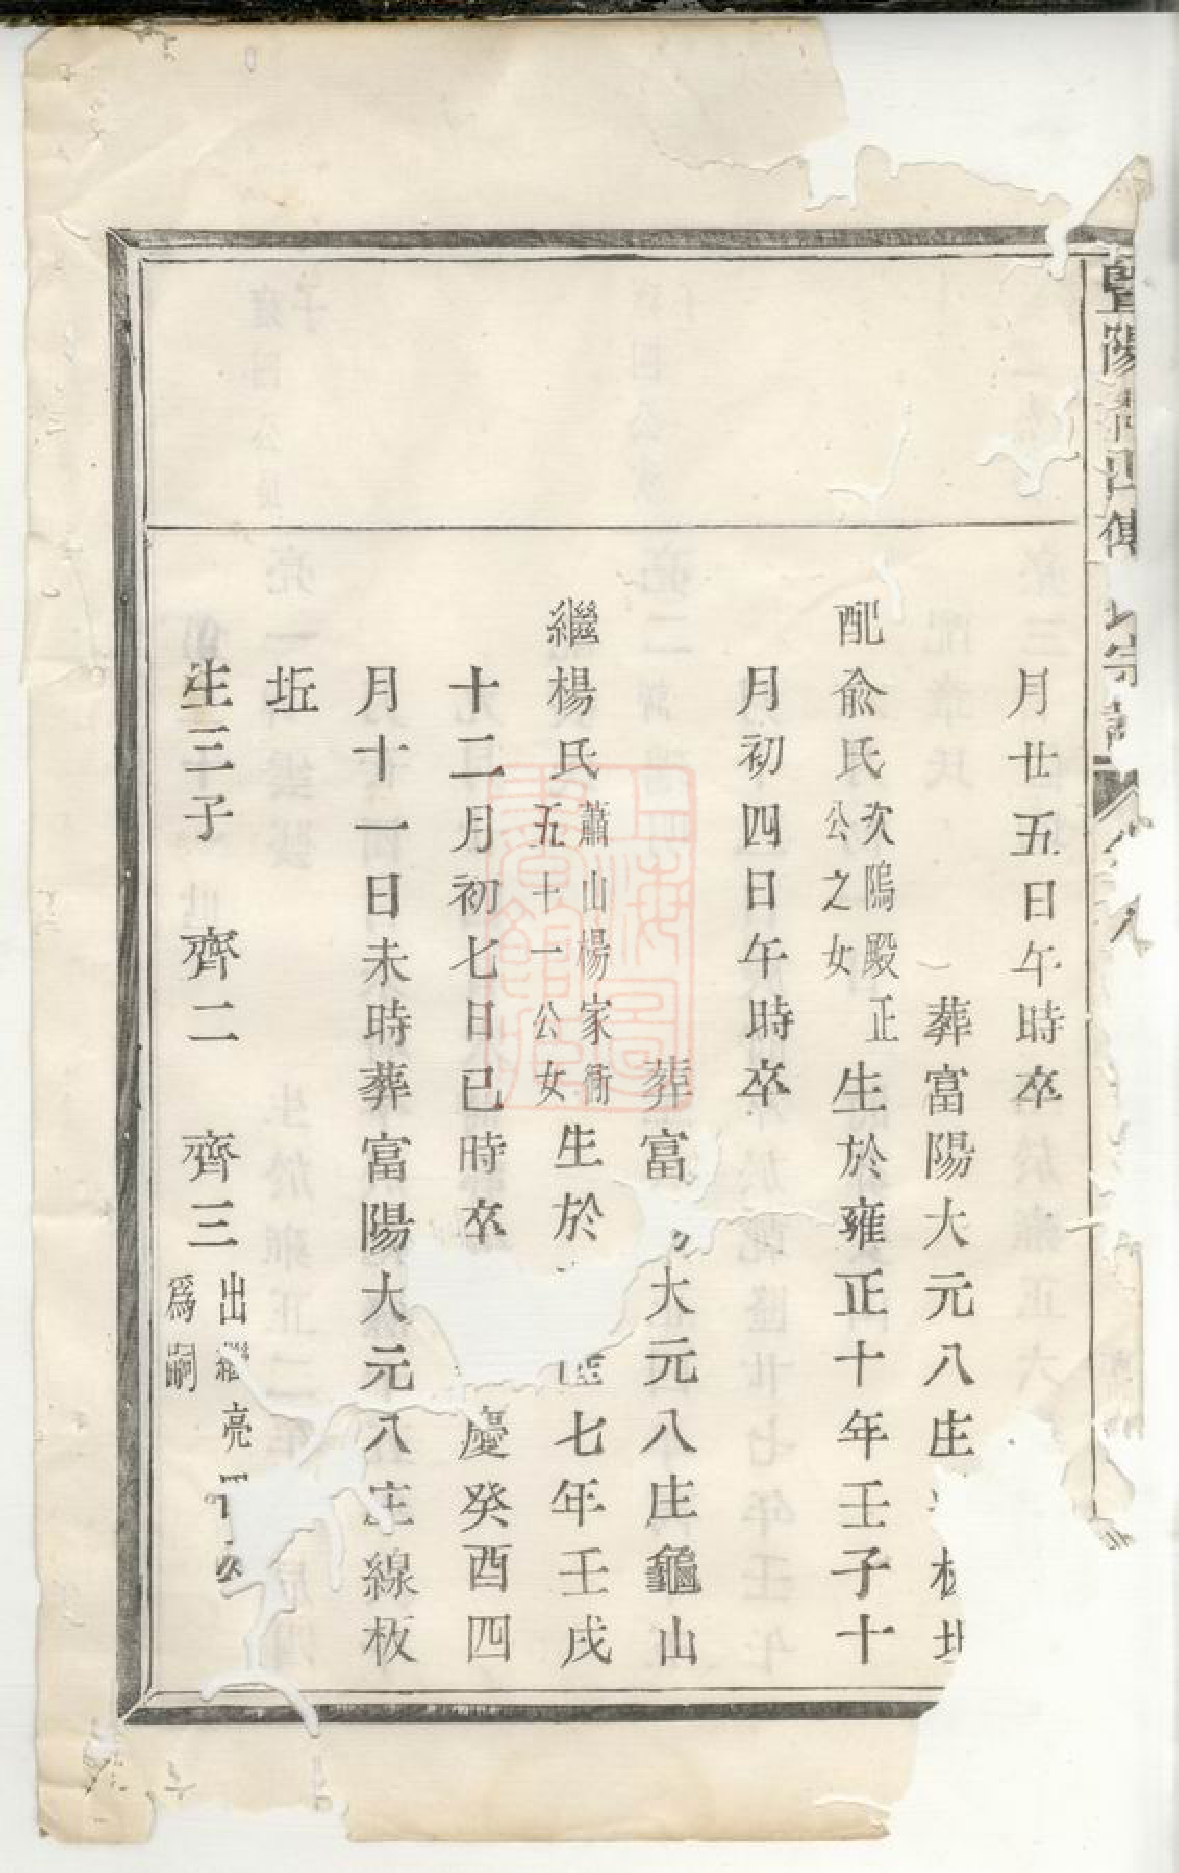 暨陽
月廿五日午時卒
葬富陽大元八庄
配俞氏
次隖殿正
公之女
生於雍正十年壬子十
月初四日午時卒
葬富大元八庄龜山
繼楊氏
蕭山楊家衖
五十一公女
生於七年壬戌
十二月初七日已時卒
慶癸酉四
月十一日未時葬富陽大元八庄線板
坵
生三子 齊二 齊三
出繼亮
爲嗣